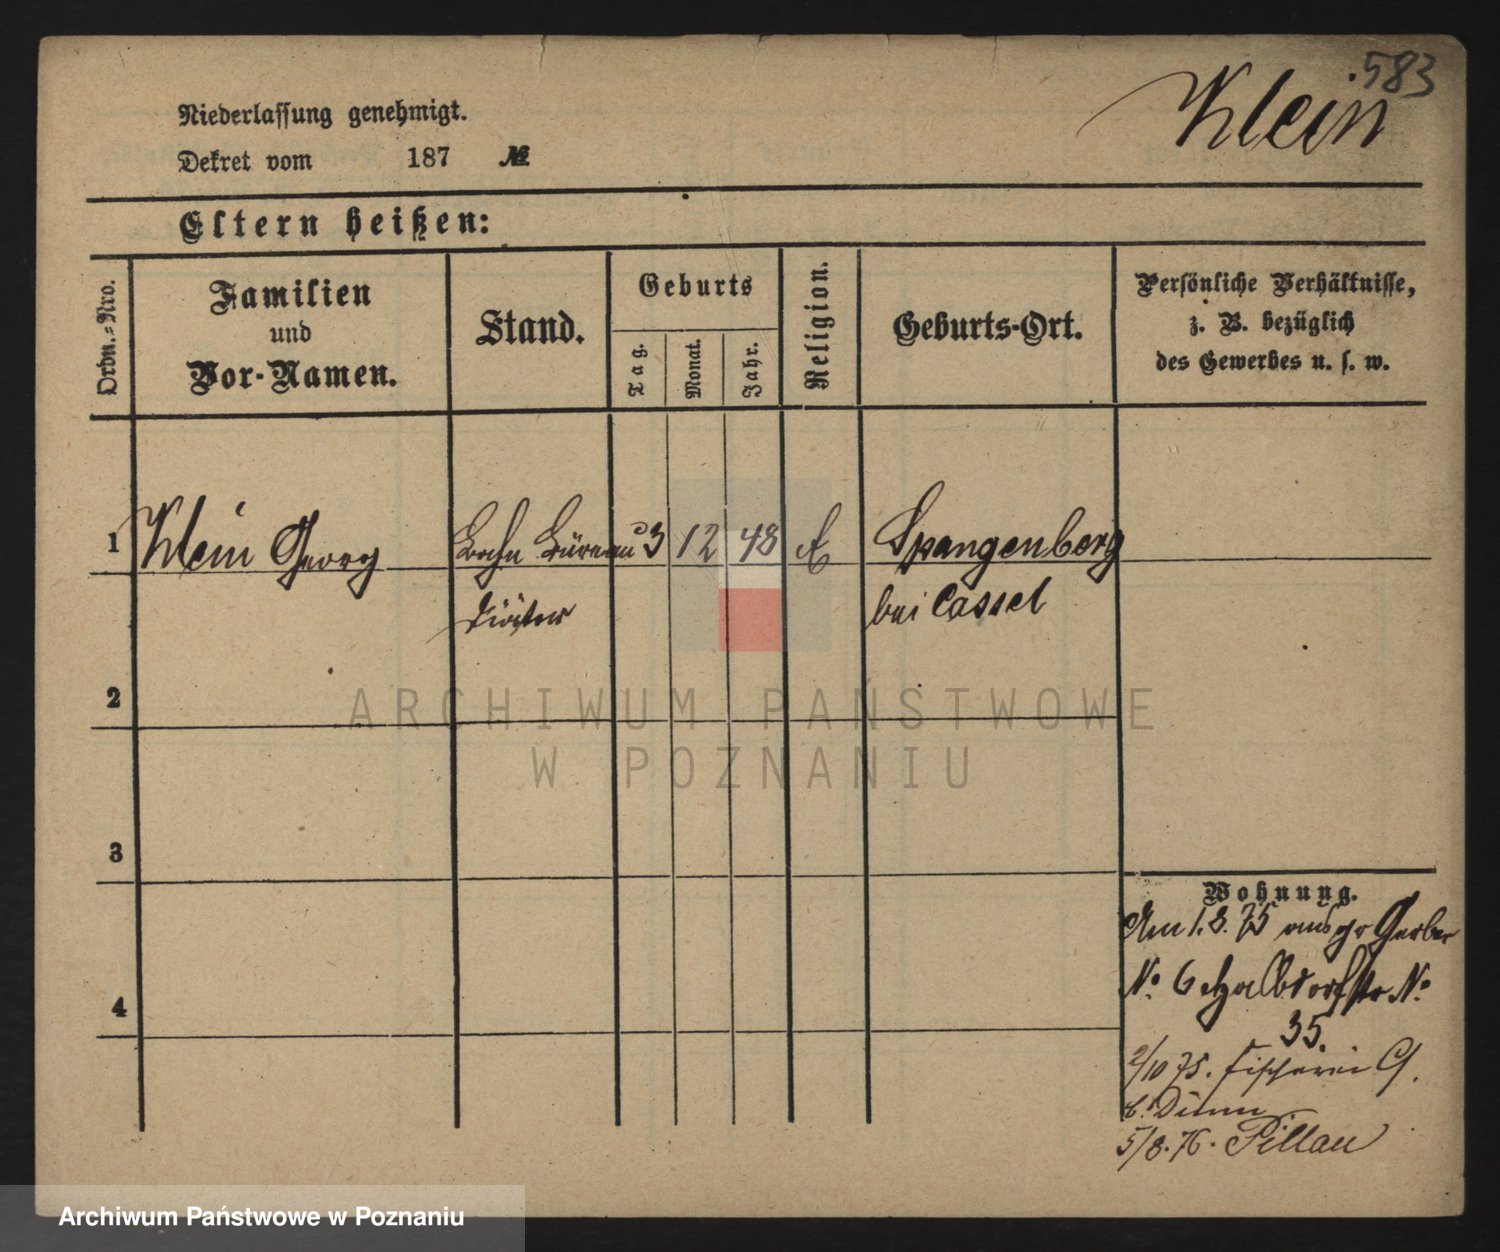 583
Klein
Niederlassung genehmigt.
Dekret vom 187 №
Eltern heißen:
Ordn.-Nro.
Familien
und
Vor-Namen.
Stand.
Geburts
Tag.
Monat.
Jahr.
Religion.
Geburts-Ort.
Persönliche Verhältnisse,
z. B. bezüglich
des Gewerbes u. s. w.
1 Klein Georg Bahn Büreau 3 12 48 Spangenberg
Diätar bei Cassel
2
3
4
Wohnung.
Am 1.8.75 aus gr Gerber
No. 6 Halbdorfstr No.
35.
2/10 75. Fischerei
b. Dümm
5/8.76. Pillau
ARCHIWUM PAŃSTWOWE
W POZNANIU
Archiwum Państwowe w Poznaniu